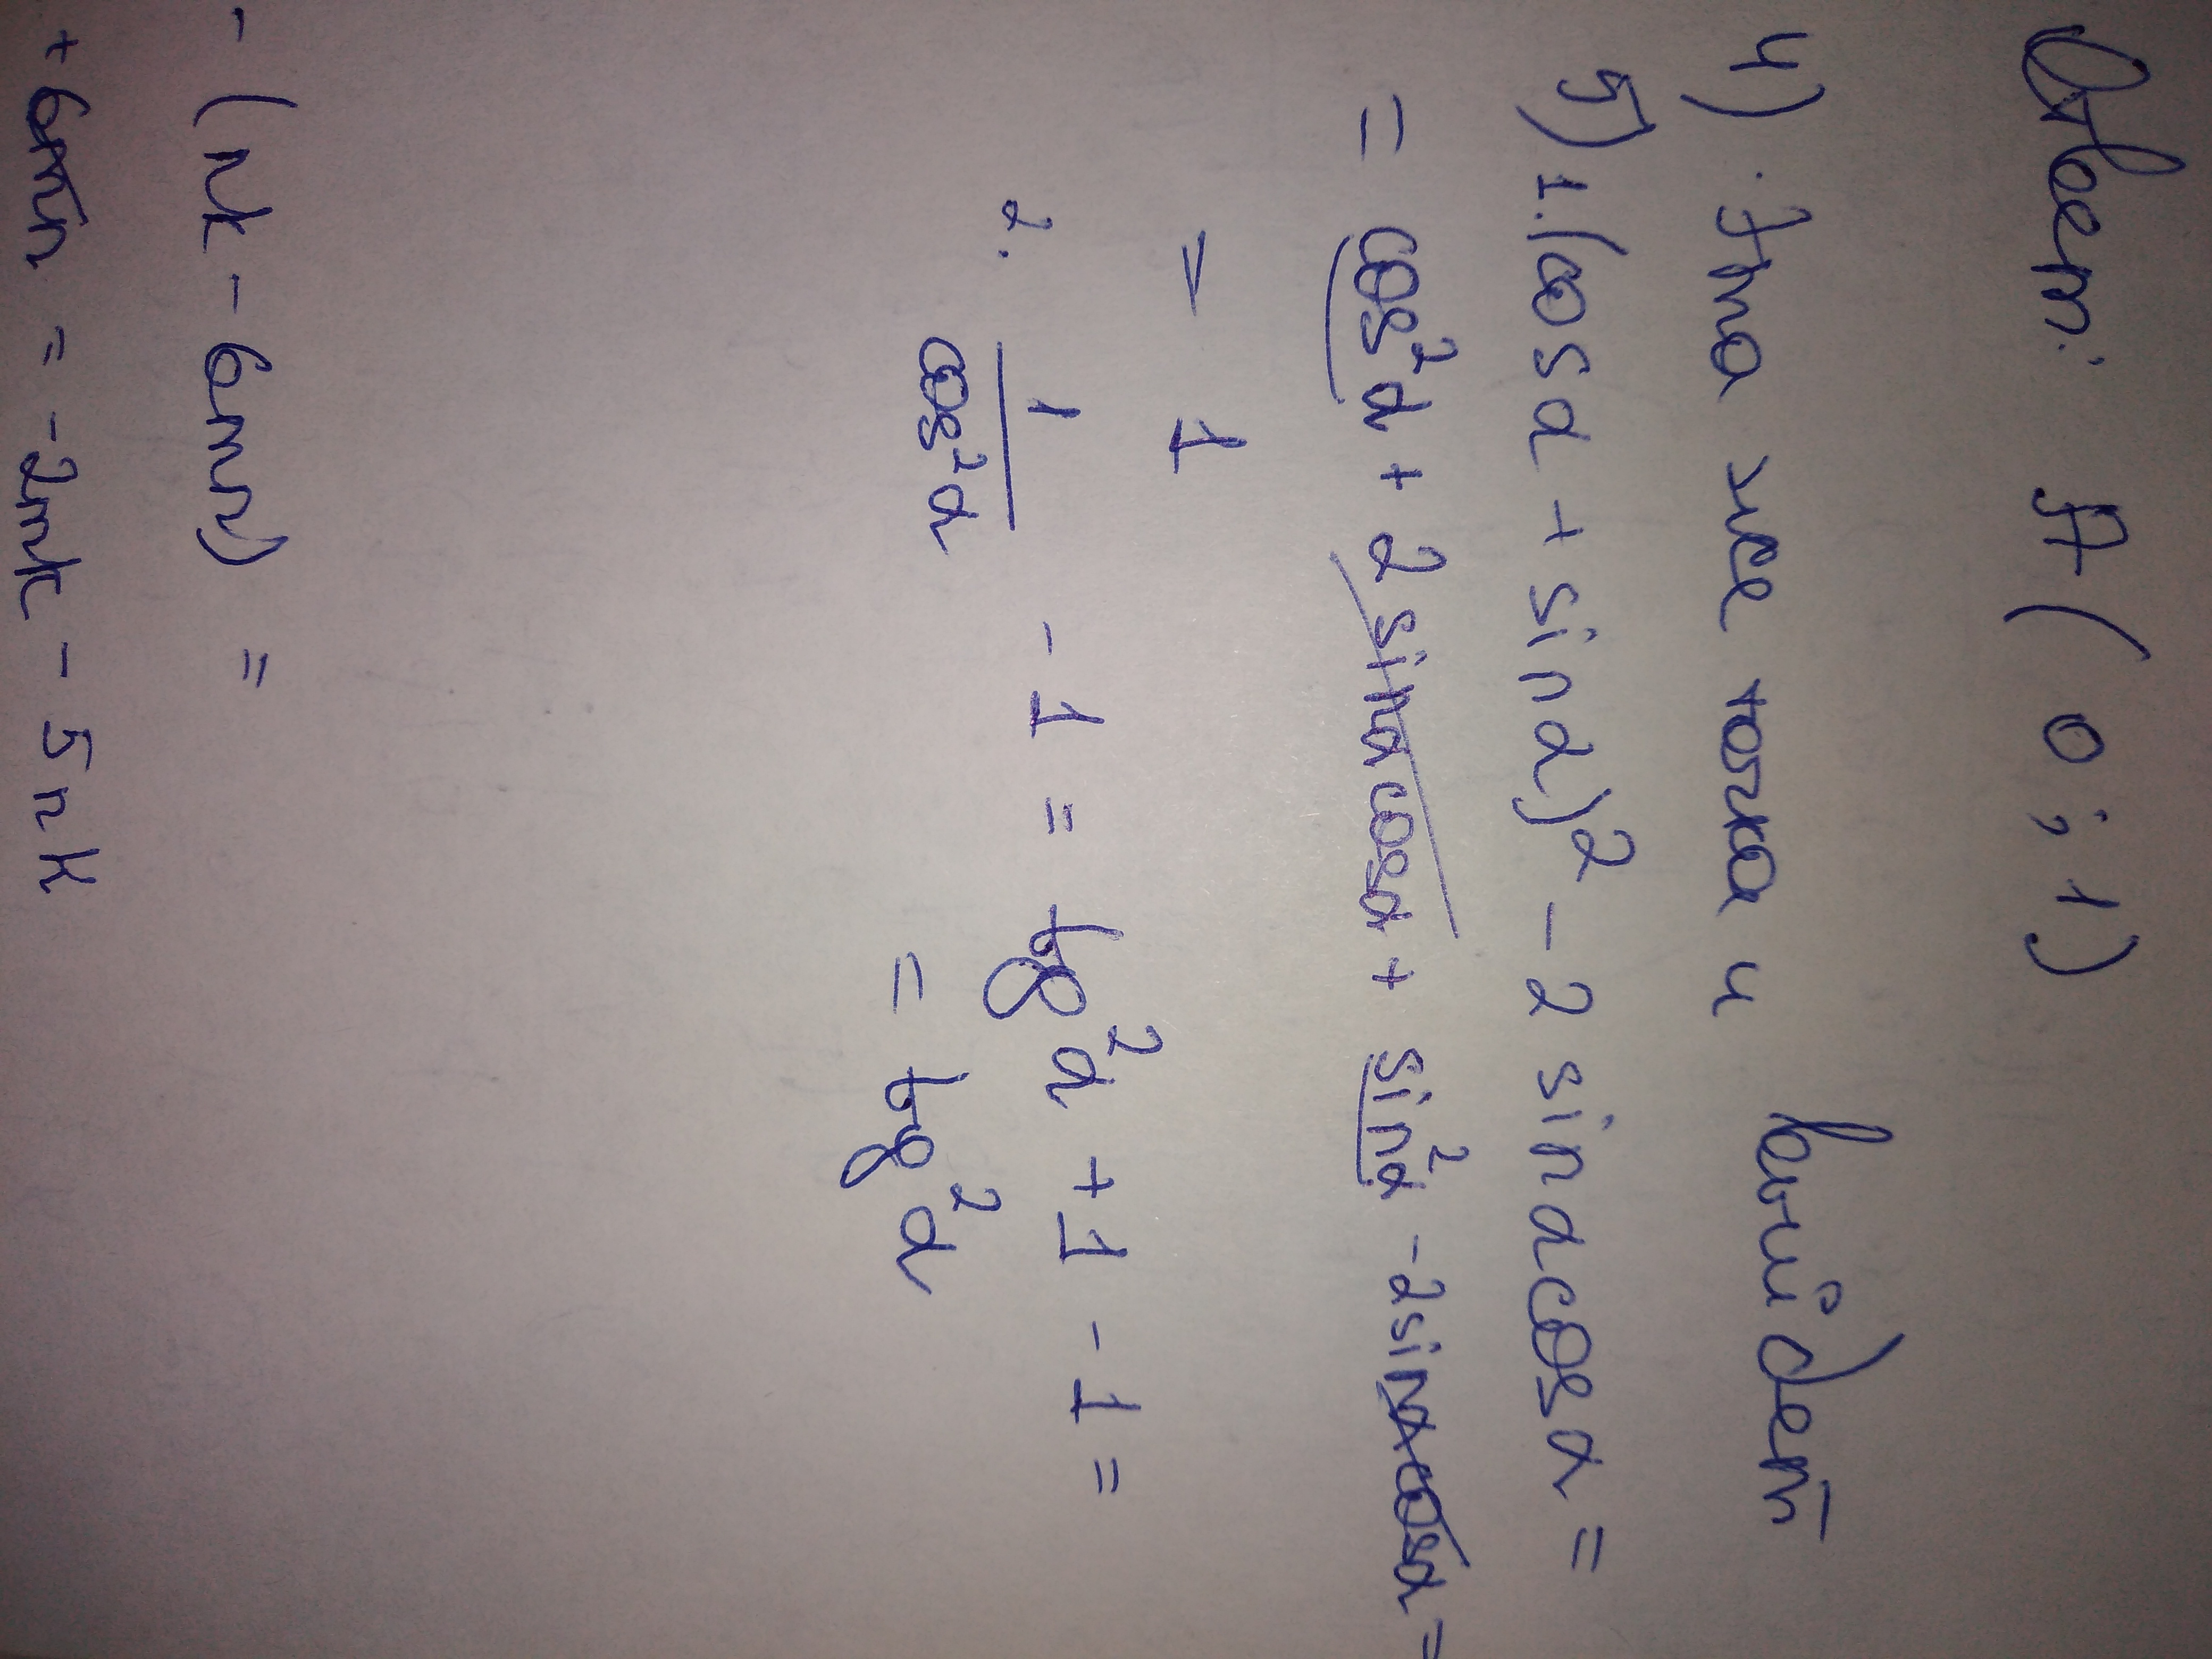 Ответ: A(0;1)
4) Эта же точка и выйдет
5) 1. (cosα + sinα)² - 2 sinα cosα =
= cos²α + 2 sinα cosα + sin²α - 2 sinα cosα =
= 1
2. 1/cos²α - 1 = tg²α + 1 - 1 =
= tg²α
- (nk - 6mn) =
+ 6mn = -2mk - 5nk